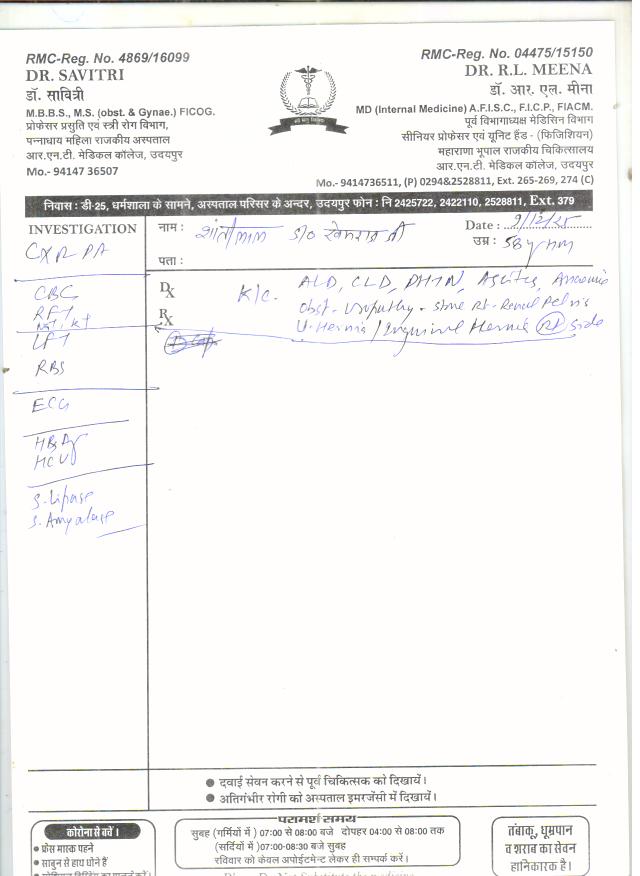 RMC-Reg. No. 4869/16099
DR. SAVITRI
डॉ. सावित्री
M.B.B.S., M.S. (obst. & Gynae.) FICOG.
प्रोफेसर प्रसुति एवं स्त्री रोग विभाग,
पन्नाधाय महिला राजकीय अस्पताल
आर.एन.टी. मेडिकल कॉलेज, उदयपुर
Mo.- 94147 36507
RMC-Reg. No. 04475/15150
DR. R.L. MEENA
डॉ. आर. एल. मीना
MD (Internal Medicine) A.F.I.S.C., F.I.C.P., FIACM.
पूर्व विभागाध्यक्ष मेडिसिन विभाग
सीनियर प्रोफेसर एवं यूनिट हैड - (फिजिशियन)
महाराणा भूपाल राजकीय चिकित्सालय
आर.एन.टी. मेडिकल कॉलेज, उदयपुर
Mo.- 9414736511, (P) 0294&2528811, Ext. 265-269, 274 (C)
निवास : डी-25, धर्मशाला के सामने, अस्पताल परिसर के अन्दर, उदयपुर फोन : नि 2425722, 2422110, 2528811, Ext. 379
INVESTIGATION
CXR PA
CBC
RFT
Na+, K+
LFT
RBS
ECG
HBsAg
HCV
S. Lipase
S. Amyalase
नाम : S/O
Date : 9/12/25
उम्र : 58y
पता :
Dx K/c. ALD, CLD, PHTN, Ascites, Anaemia
Rx Obst. Uropathy - stone Rt- Renal Pelvis
U. Hernia / Inguinal Hernia Rt side
● दवाई सेवन करने से पूर्व चिकित्सक को दिखायें।
● अतिगंभीर रोगी को अस्पताल इमरजेंसी में दिखायें।
कोरोना से बचें ।
● फ्रेस मास्क पहने
● साबुन से हाथ धोने हैं
परामर्श समय
सुबह (गर्मियों में ) 07:00 से 08:00 बजे दोपहर 04:00 से 08:00 तक
(सर्दियों में ) 07:00-08:30 बजे सुबह
रविवार को केवल अपोईंटमेन्ट लेकर ही सम्पर्क करें।
तंबाकू, धूम्रपान
व शराब का सेवन
हानिकारक है।